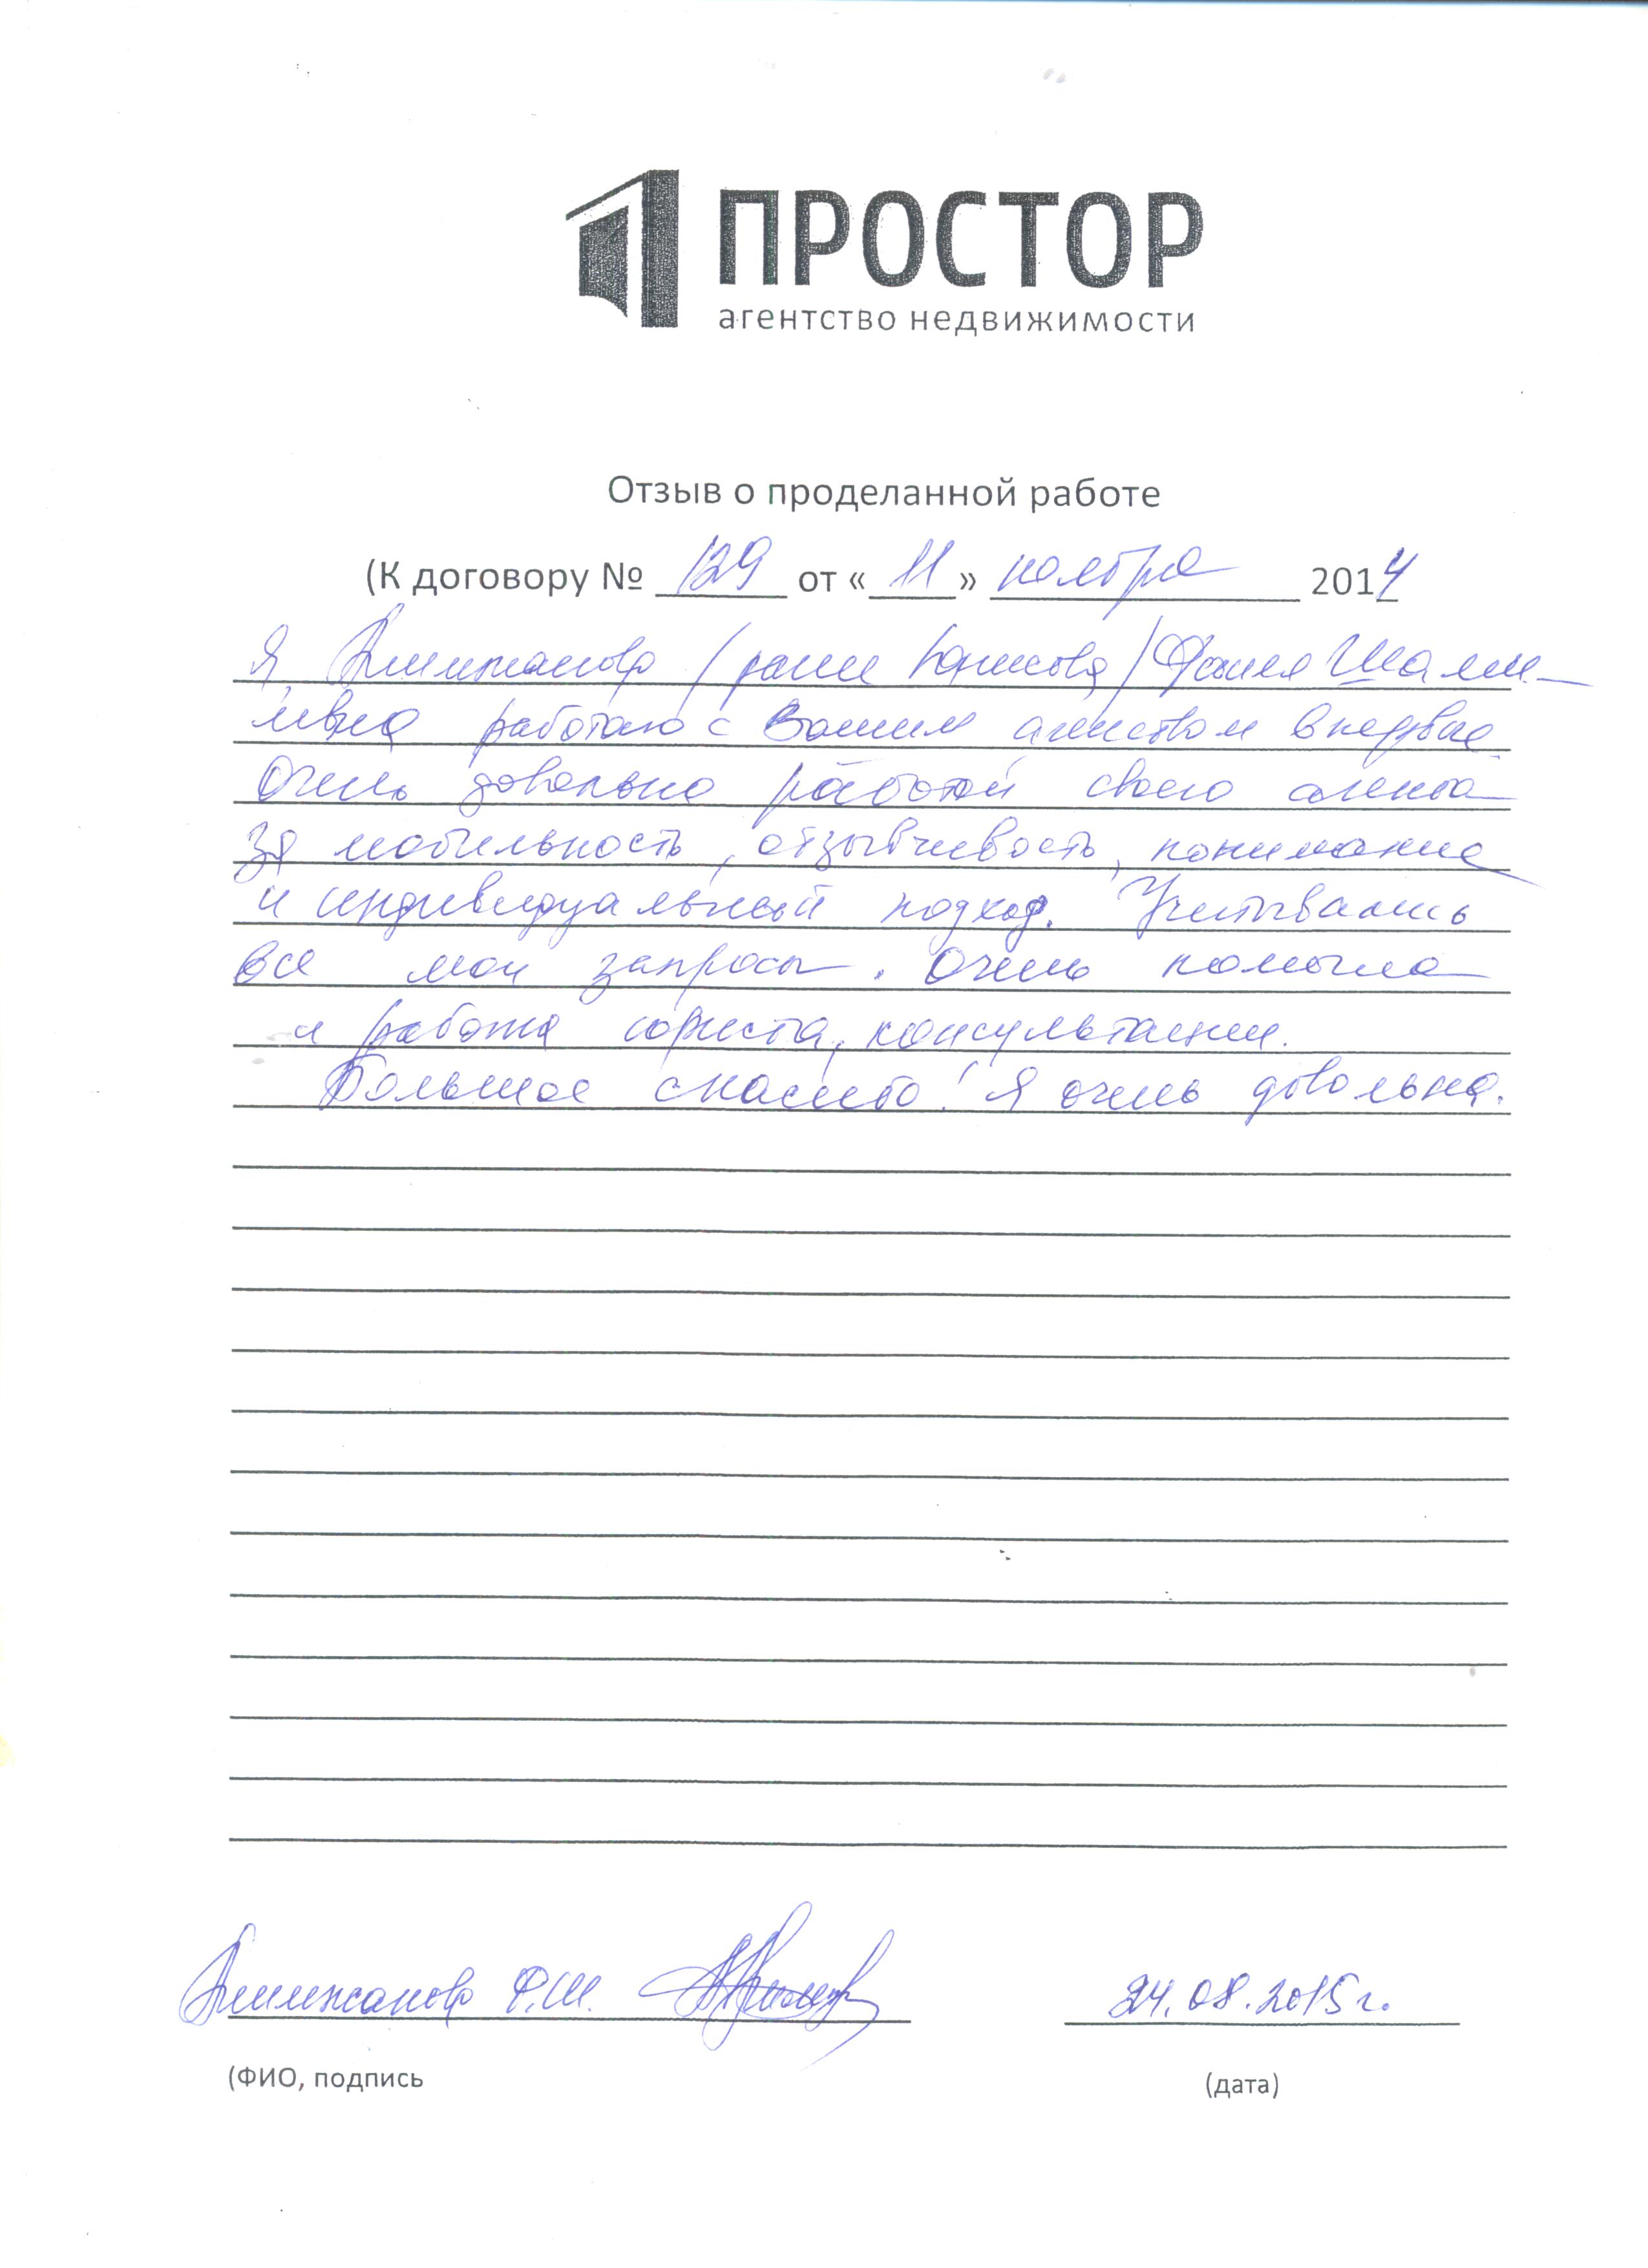 ПРОСТОР
агентство недвижимости
Отзыв о проделанной работе
(К договору № 129 от « 11 » ноября 2014
Я Алимжанова / ранее / Фания Шами-
льевна работаю с Вашим агенством впервые
Очень довольна работой своего агента
за мобильность, отзывчивость, понимание
и индивидуальный подход. Учитывались
все мои запросы. Очень помогла
и работа юриста, консультации.
Большое спасибо! Я очень довольна.
Алимжанова Ф.Ш.
24.08.2015г.
(ФИО, подпись
(дата)